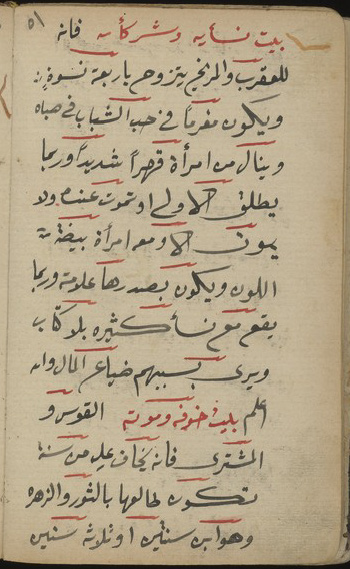 ٥١
بيت نسايه وشركاه فانه
للعقرب والمريخ يتزوج باربعة نسوة
ويكون مغرماً في حب الشباب في صباه
وينال من امرأة قهراً شديداً وربما
يطلق الاولى او تموت عنده ولا
يموت الا ومعه امرأة بيضة
اللون ويكون بصدرها علامة وربما
يقع مع نسأ كثيره بلو كتاب
ويرى بسببهم ضياع المال والله
اعلم بليت خوفه وموته القوس و
المشترى فانه يخاف عليه من سنة
تكون طالعها بالثور والزهره
وهو ابن سنتين او ثلاثه سنين